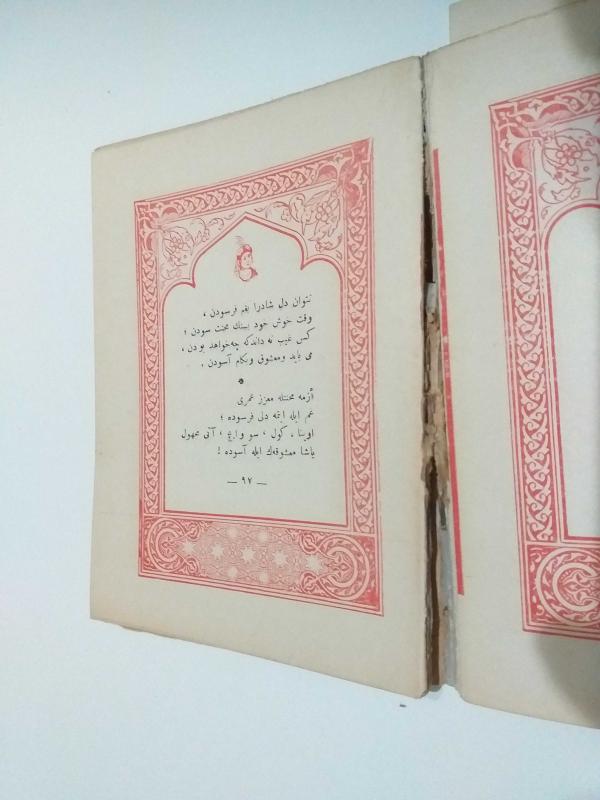 نتوان دل شادرا بغم فرسودن ،
وقت خوش خود بسنك محنت سودن ؛
كس غيب نه داندكه چه‌خواهد بودن ،
می بايد ومعشوق وبكام آسودن .
*
أزمه محنتله معزز عمری
غم ايله ايتمه دلی فرسوده ؛
اوينا ، كول ، سو وايچ ، آتی مجهول
ياشا معشوقه‌ك ايله آسوده !
— ٩٧ —